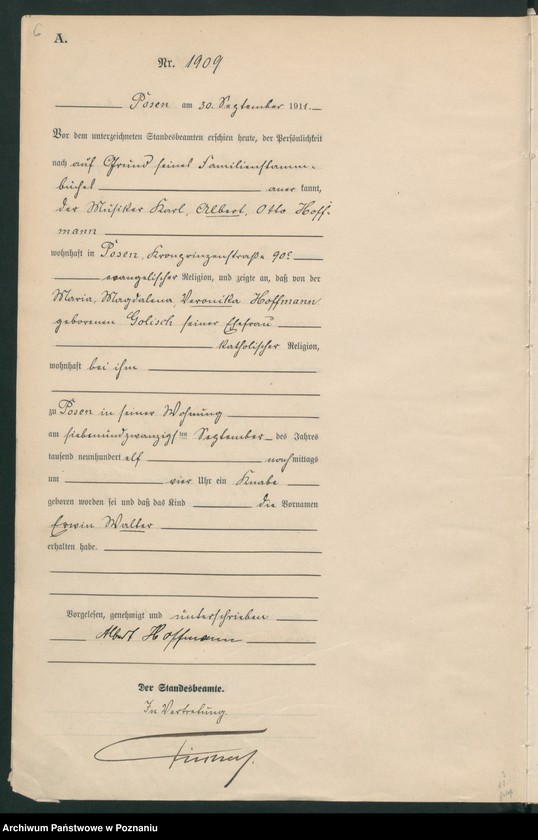 6
A.
Nr. 1909
Posen am 30. September 1911.
Vor dem unterzeichneten Standesbeamten erschien heute, der Persönlichkeit
nach auf Grund seines Familienstamm-
buches anerkannt,
der Musiker Karl, Albert, Otto Hoff-
mann
wohnhaft in Posen, Kronprinzenstraße 90
evangelischer Religion, und zeigte an, daß von der
Maria, Magdalena, Veronika Hoffmann
geborenen Golisch seiner Ehefrau
katholischer Religion,
wohnhaft bei ihm
zu Posen in seiner Wohnung
am siebenundzwanzigsten September des Jahres
tausend neunhundert elf nachmittags
um vier Uhr ein Knabe
geboren worden sei und daß das Kind die Vornamen
Erwin Walter
erhalten habe.
Vorgelesen, genehmigt und unterschrieben
Albert Hoffmann
Der Standesbeamte.
In Vertretung.
Archiwum Państwowe w Poznaniu